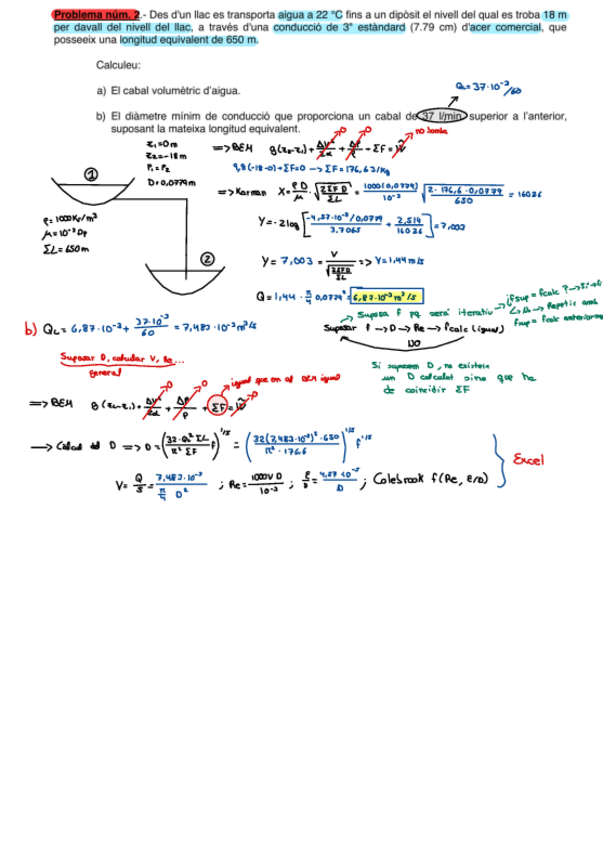 Problema núm. 2.- Des d'un llac es transporta aigua a 22 °C fins a un dipòsit el nivell del qual es troba 18 m
per davall del nivell del llac, a través d'una conducció de 3" estàndard (7.79 cm) d'acer comercial, que
posseeix una longitud equivalent de 650 m.
Calculeu:
a) El cabal volumètric d'aigua.
QL = 37·10⁻³/60
b) El diàmetre mínim de conducció que proporciona un cabal de 37 l/min superior a l'anterior,
suposant la mateixa longitud equivalent.
no bomba
z₁=0m
z₂=-18m
P₁=P₂
D=0,0779m
1
2
ρ=1000Kg/m³
μ=10⁻³ Dp
ΣL=650m
=> BEM g(z₂-z₁)+ΔV²/2α+ΔP/ρ+ΣF=Ŵ
9,8(-18-0)+ΣF=0 → ΣF=176,6J/Kg
=> Karman X=ρD/μ·√(2ΣF D/ΣL)=1000(0,0779)/10⁻³ √(2·176,6·0,0779/650)=16026
Y=-2log[4,57·10⁻⁵/0,0779/3,7065+2,514/16026]=7,003
Y=7,003=V/√(2ΣFD/ΣL) => V=1,44m/s
Q=1,44·π/4 0,0779²=6,87·10⁻³m³/s
b) QL=6,87·10⁻³+37·10⁻³/60=7,483·10⁻³m³/s
Suposar f pq serà iteratiu
fsup=fcalc ?→Sí→fi
No→Repetir amb
fsup=fcalc anterior
Suposar f→D→Re→fcalc (igual)
NO
Suposar D, calcular V, Re...
general
Si suposem D, no existeix
un D calculat sino que ha
de coincidir ΣF
igual que en el BEM igual
=> BEM g(z₂-z₁)+ΔV²/2α+ΔP/ρ+ΣF=Ŵ
→ Calcul del D => D=(32·Q²ΣL/π²ΣF f)^1/5=(32(7,483·10⁻³)²·650/π²·176,6)^1/5 f^1/5
V=Q/S=7,483·10⁻³/π/4 D²; Re=1000VD/10⁻³; ε/D=4,57·10⁻⁵/D; Colebrook f(Re, ε/D)
Excel